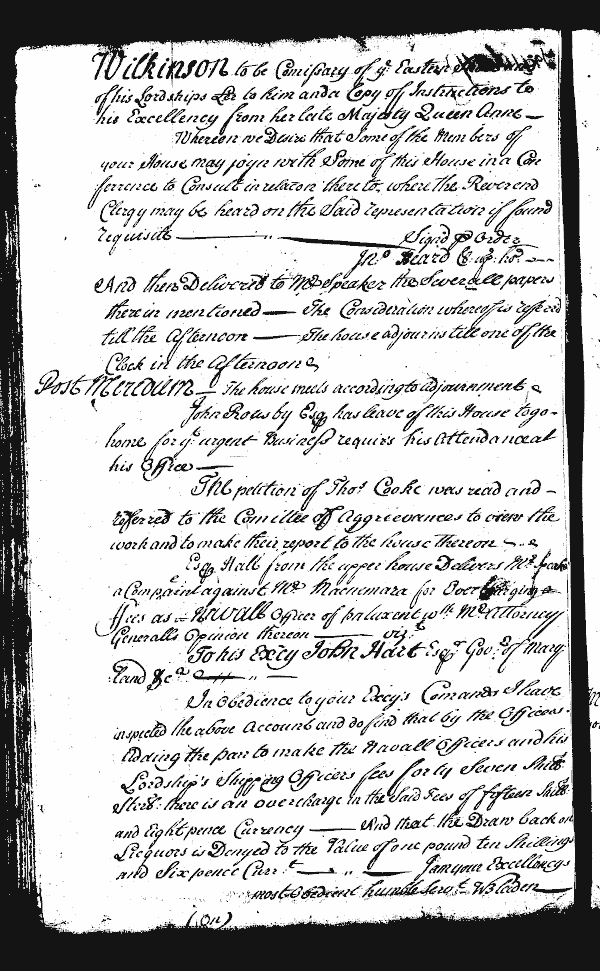 Wilkinson to be Comissary of ye Eastern
of his Lordships Lre to him and a Copy of Instructions to
his Excellency from her late Majesty Queen Anne —
Whereon we Desire that Some of the Members of
your House may joyn with Some of this House in a Con
ferrence to Consult in relacon thereto, where the Reverend
Clergy may be heard on the Said representation if found
requisite — Signd p Order
Jno Beard Cl up. ho.
And then Deliverd to Mr Speaker the Severall papers
therein mentioned — The Consideration whereof is referrd
till the Afternoon — The house adjourns till one of the
Clock in the Afternoon
Post Meredium — The house meets according to adjournment
John Rousby Esq has leave of this House to go
home for ye urgent Business requirs his attendance at
his Office —
The petition of Thos Cooke was read and
referred to the Comittee of Aggrievances to view the
work and to make their report to the house thereon
Esq Hall from the upper house Delivers Mr Speak
a Complaint against Mr Macnemara for Overcharging
ffees as Navall Officer of patuxent wth Mr Attorney
Generalls Opinion thereon — viz
To his Excy John Hart Esqr Govr of Mary
land &ca
In Obedience to your Excys Comands I have
inspected the above Account and do find that by the Officers
the pan to make the Navall Officers and his
Lordship's Shipping Officers fees forty Seven Shill
Sterl: there is an overcharge in the Said Fees of fifteen Shill
and Eight pence Currency — And that the Draw back on
Liquors is Denyed to the Value of one pound ten Shillings
and Six pence Currt — I am your Excellencys
most Obedient humble Servt W Bladen
(On)